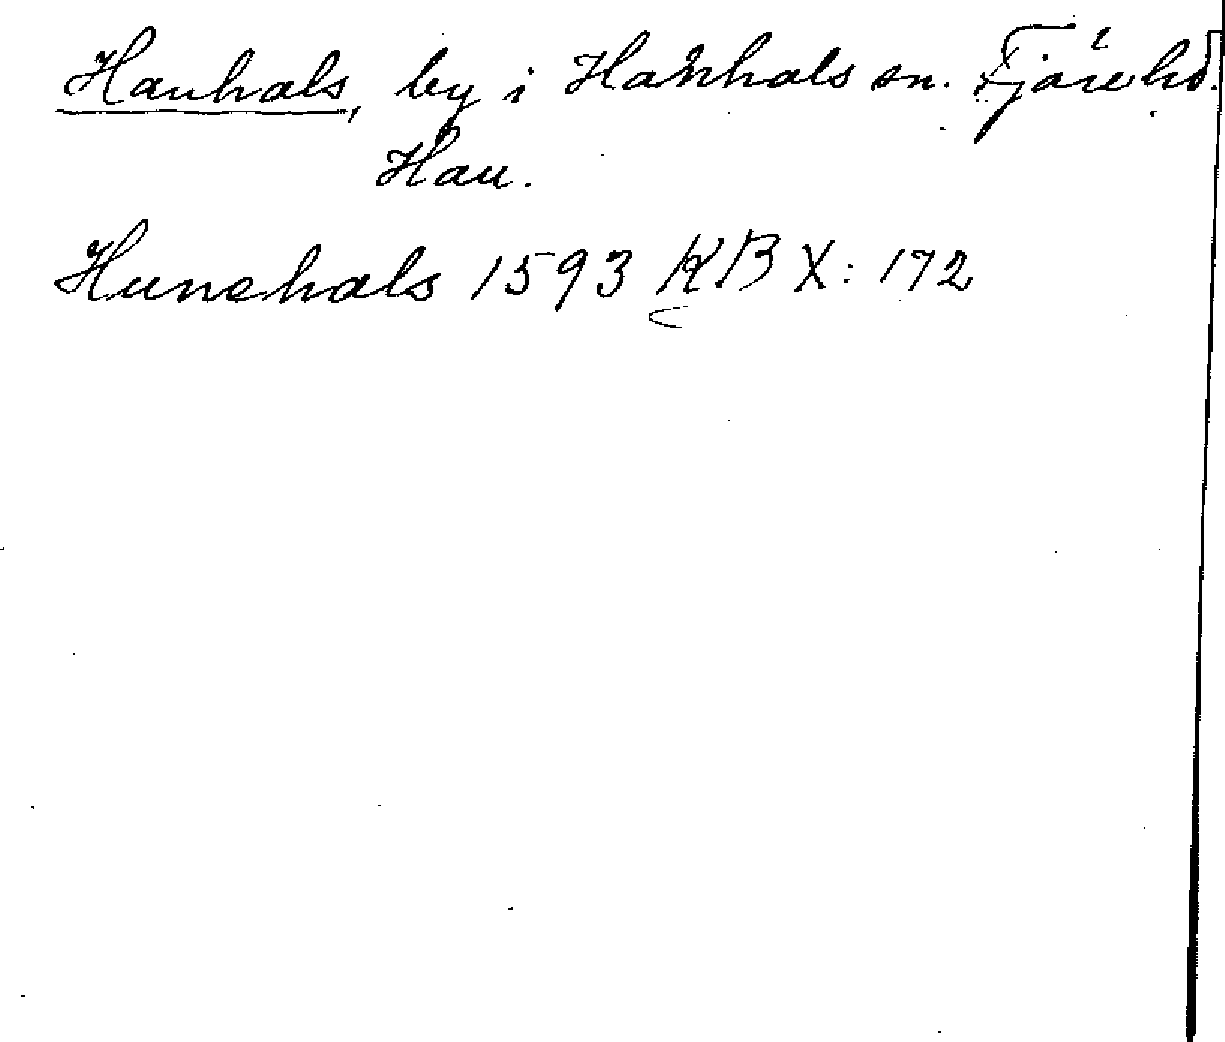 Hanhals, by i Hanhals sn. Fjäre hd.
Hall.
Hunehals 1593 KB X: 172